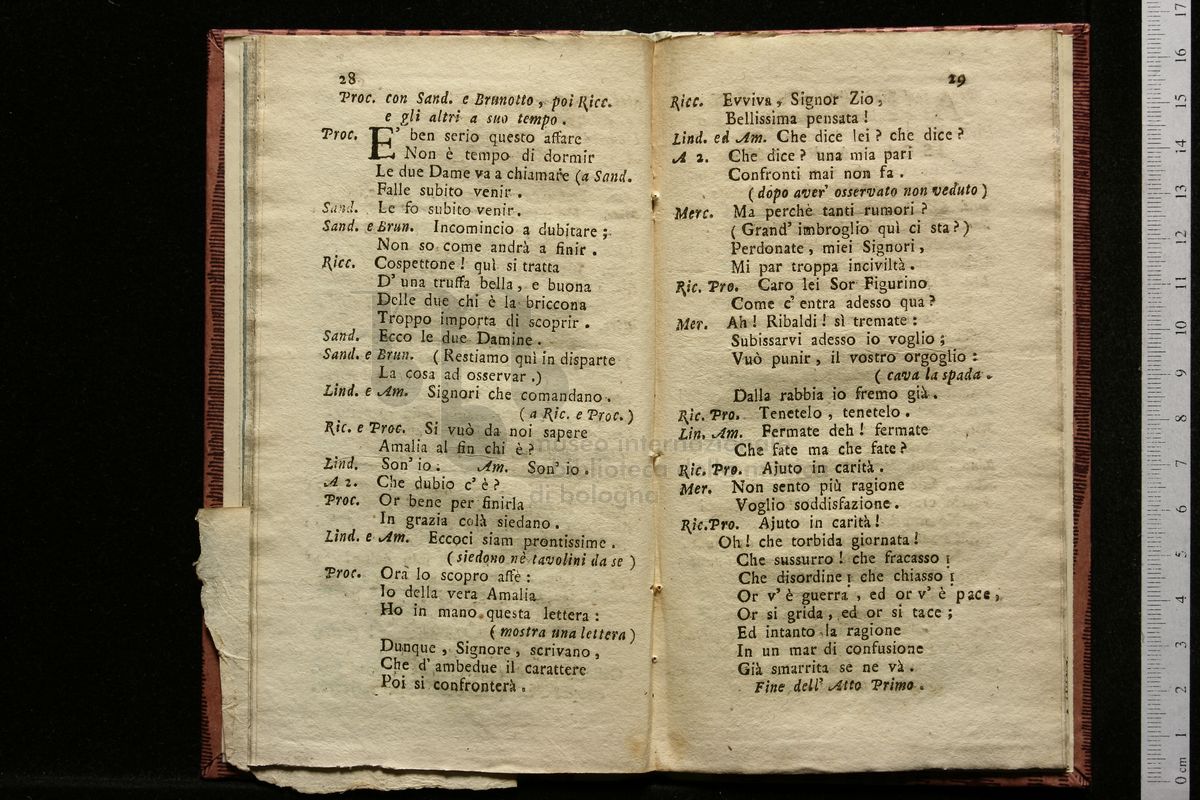 28
Proc. con Sand. e Brunotto, poi Ricc.
e gli altri a suo tempo.
Proc. E' ben serio questo affare
Non è tempo di dormir
Le due Dame va a chiamare (a Sand.
Falle subito venir.
Sand. Le fo subito venir.
Sand. e Brun. Incomincio a dubitare;
Non so come andrà a finir.
Ricc. Cospettone! quì si tratta
D' una truffa bella, e buona
Delle due chi è la briccona
Troppo importa di scoprir.
Sand. Ecco le due Damine.
Sand. e Brun. (Restiamo quì in disparte
La cosa ad osservar.)
Lind. e Am. Signori che comandano.
(a Ric. e Proc.)
Ric. e Proc. Si vuò da noi sapere
Amalia al fin chi è?
Lind. Son' io. Am. Son' io.
A 2. Che dubio c' è?
Proc. Or bene per finirla
In grazia colà siedano.
Lind. e Am. Eccoci siam prontissime.
(siedono nè tavolini da se)
Proc. Ora lo scopro affè:
Io della vera Amalia
Ho in mano questa lettera:
(mostra una lettera)
Dunque, Signore, scrivano,
Che d' ambedue il carattere
Poi si confronterà.
29
Ricc. Evviva, Signor Zio,
Bellissima pensata!
Lind. ed Am. Che dice lei? che dice?
A 2. Che dice? una mia pari
Confronti mai non fa.
(dopo aver' osservato non veduto)
Merc. Ma perchè tanti rumori?
(Grand' imbroglio quì ci sta?)
Perdonate, miei Signori,
Mi par troppa inciviltà.
Ric. Pro. Caro lei Sor Figurino
Come c' entra adesso qua?
Mer. Ah! Ribaldi! sì tremate:
Subissarvi adesso io voglio;
Vuò punir, il vostro orgoglio:
(cava la spada.
Dalla rabbia io fremo già.
Ric. Pro. Tenetelo, tenetelo.
Lin. Am. Fermate deh! fermate
Che fate ma che fate?
Ric. Pro. Ajuto in carità.
Mer. Non sento più ragione
Voglio soddisfazione.
Ric. Pro. Ajuto in carità!
Oh! che torbida giornata!
Che sussurro! che fracasso!
Che disordine! che chiasso!
Or v' è guerra, ed or v' è pace,
Or si grida, ed or si tace;
Ed intanto la ragione
In un mar di confusione
Già smarrita se ne và.
Fine dell' Atto Primo.
museo internazionale
biblioteca della musica
di bologna
0 cm 1 2 3 4 5 6 7 8 9 10 11 12 13 14 15 16 17